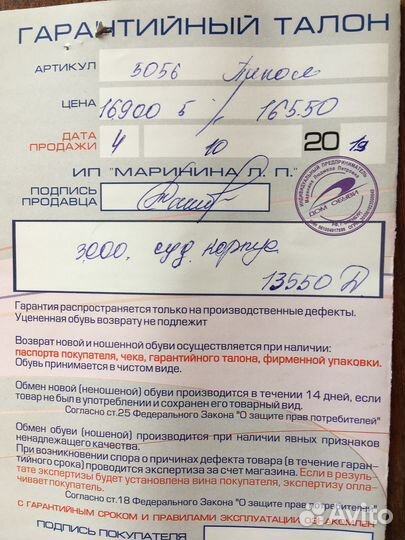 ГАРАНТИЙНЫЙ ТАЛОН
АРТИКУЛ 3056
ЦЕНА 16900 16550
ДАТА
ПРОДАЖИ 4 10 2019
ИП "МАРИНИНА Л. П."
ПОДПИСЬ
ПРОДАВЦА
ИНДИВИДУАЛЬНЫЙ ПРЕДПРИНИМАТЕЛЬ
ДОМ ОБУВИ
3000. суд. корпус
13550
Гарантия распространяется только на производственные дефекты.
Уцененная обувь возврату не подлежит
Возврат новой и ношенной обуви осуществляется при наличии:
паспорта покупателя, чека, гарантийного талона, фирменной упаковки.
Обувь принимается в чистом виде.
Обмен новой (неношеной) обуви производится в течении 14 дней, если
товар не был в употреблении и сохранен его товарный вид.
Согласно ст.25 Федерального Закона "О защите прав потребителей"
Обмен обуви (ношеной) производится при наличии явных признаков
ненадлежащего качества.
При возникновении спора о причинах дефекта товара (в течение гаран-
тийного срока) проводится экспертиза за счет магазина. Если в резуль-
тате экспертизы будет установлена вина покупателя, экспертизу опла-
чивает покупатель.
Согласно ст.18 Федерального Закона "О защите прав потребителей"
С ГАРАНТИЙНЫМ СРОКОМ И ПРАВИЛАМИ ЭКСПЛУАТАЦИИ ОЗНАКОМЛЕН
ПОДПИСЬ ПОКУПАТЕЛЯ
Avito